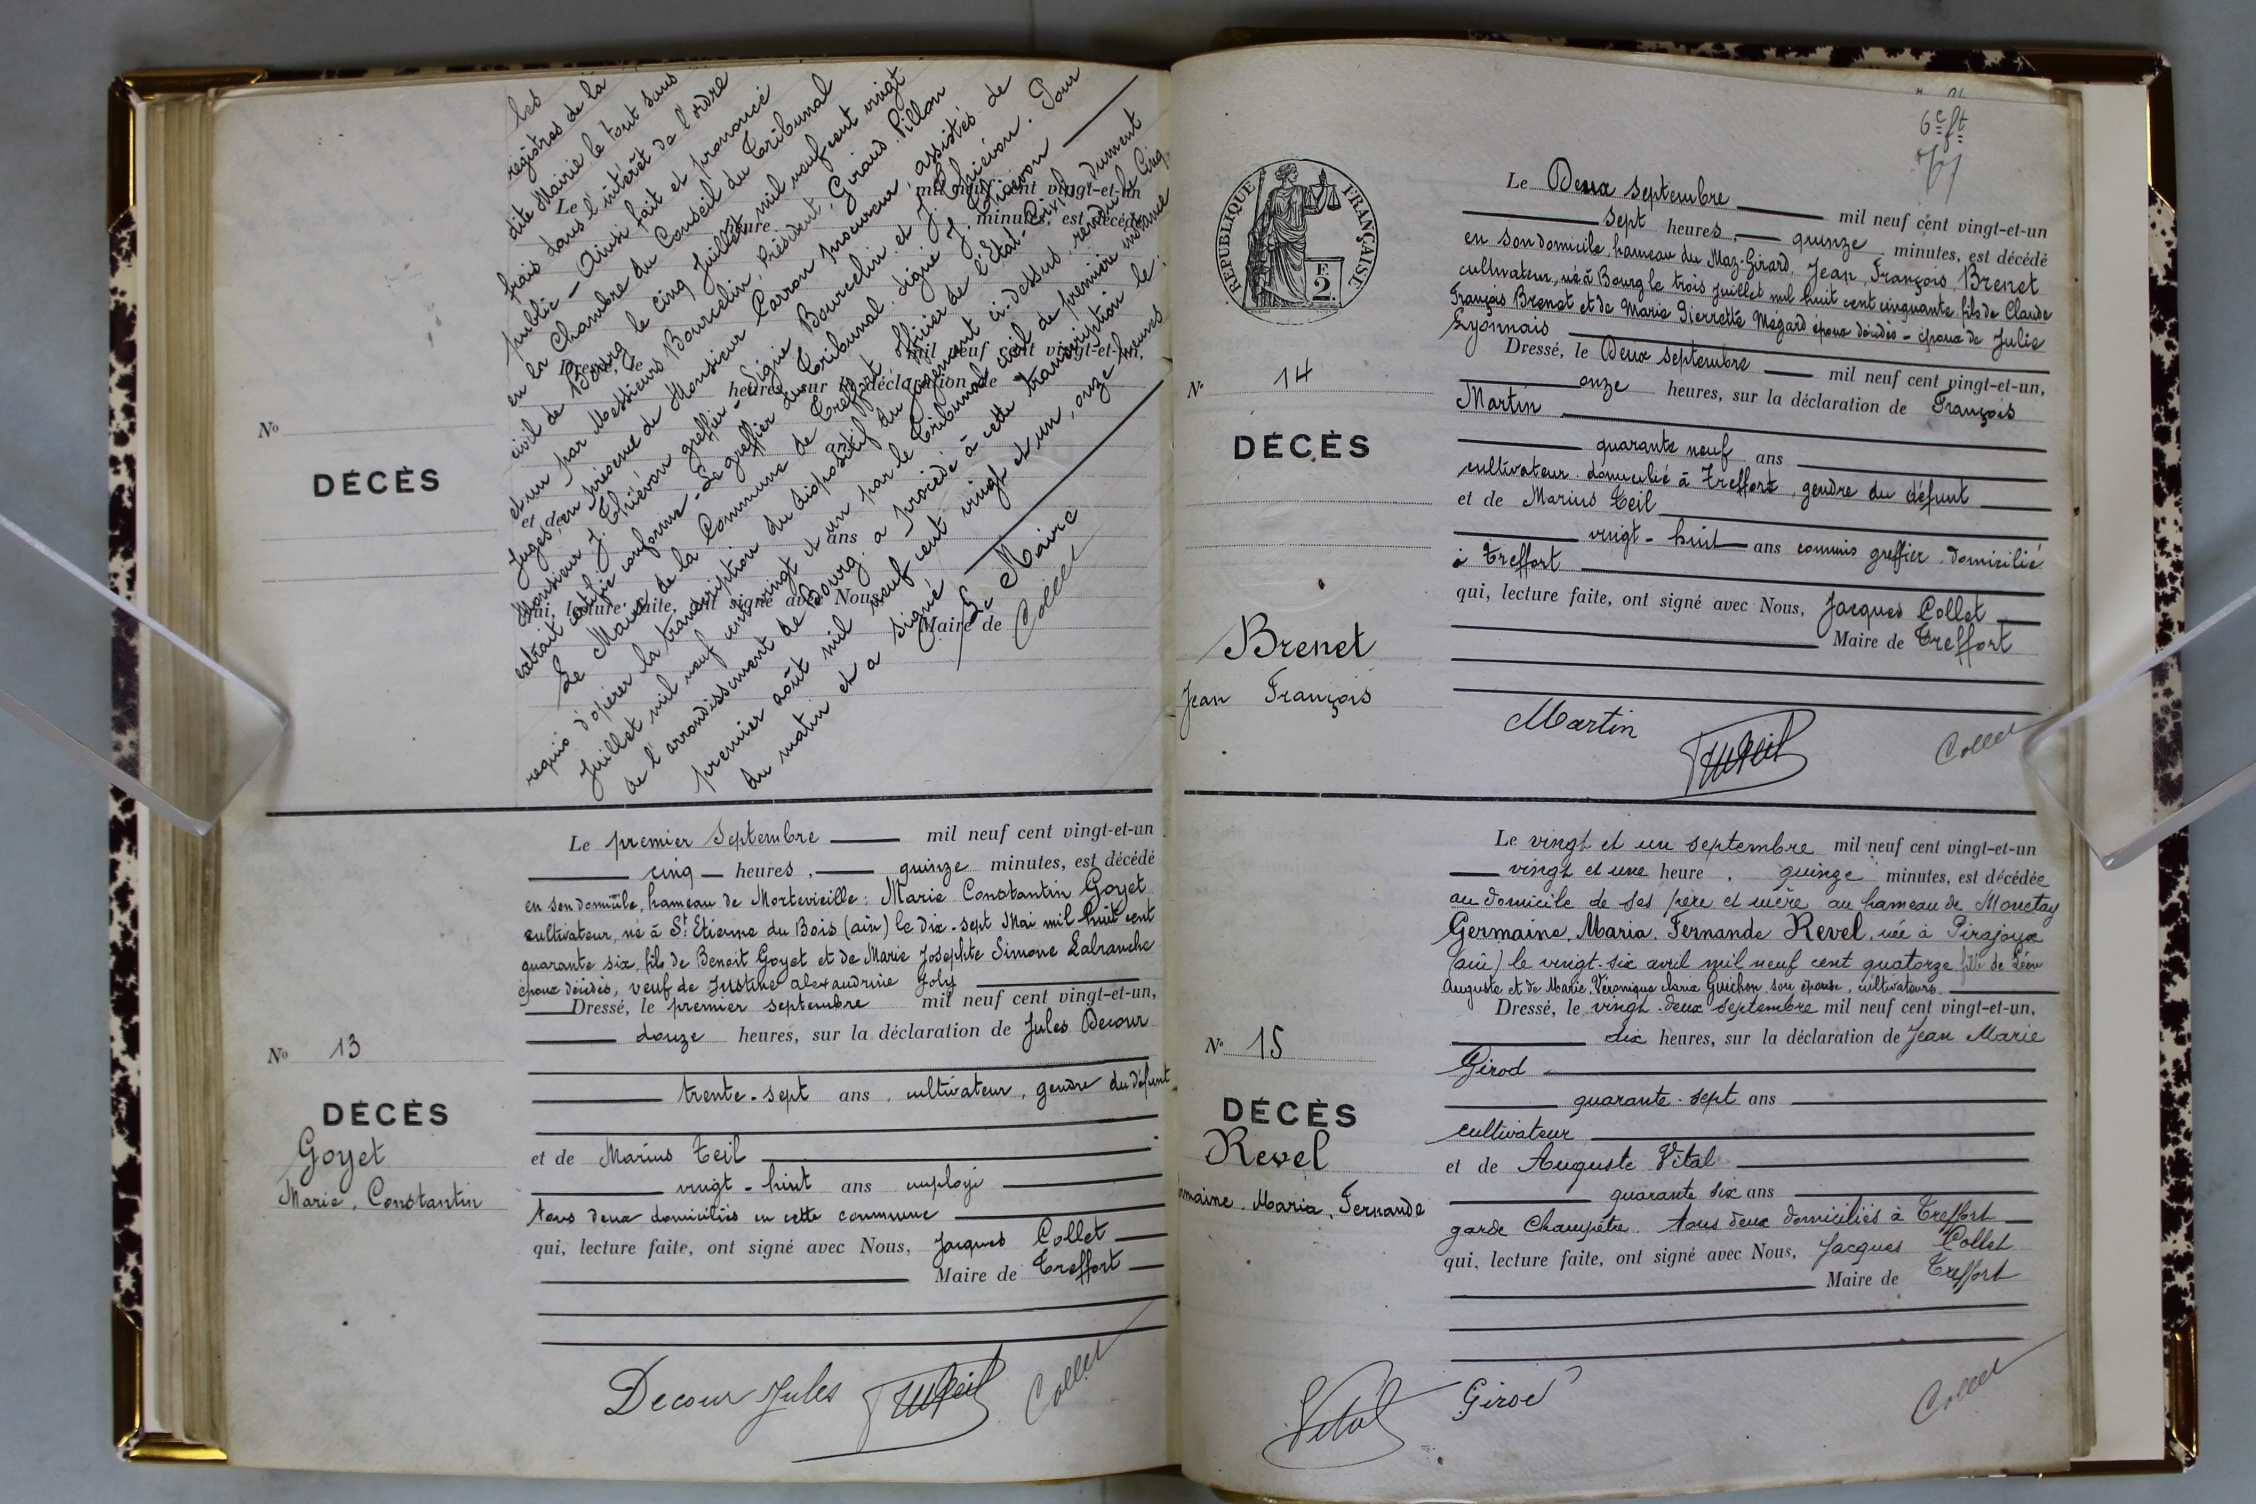 les
registres de la
dite Mairie le tout sans
frais dans l'intérêt de l'ordre
public — Ainsi fait et prononcé
en la Chambre du Conseil du Tribunal
civil de Bourg le cinq Juillet mil neuf cent vingt
et un par Messieurs Bourcelin, Président, Giraud, Pillon
Juges, en présence de Monsieur Carron procureur, assistés de
Monsieur J. Thiévon greffier — Signé Bourcelin et J. Thiévon. Pour
extrait certifié conforme — Le greffier du Tribunal signé J. Thiévon
Le Maire de la Commune de Treffort officier de l'Etat-Civil dument
requis d'opérer la transcription du dispositif du jugement ci-dessus rendu le Cinq
Juillet mil neuf cent vingt et un par le Tribunal civil de première instance
de l'arrondissement de Bourg, a procédé à cette transcription le
premier août mil neuf cent vingt et un, onze heures
du matin et a signé
Le Maire
Collet
Le
mil neuf cent vingt-et-un
heure
minutes, est décédé
Dressé, le
mil neuf cent vingt-et-un,
heures, sur la déclaration de
No
DÉCÈS
et de
ans
qui, lecture faite, ont signé avec Nous,
Maire de
Le premier Septembre mil neuf cent vingt-et-un
cinq heures, quinze minutes, est décédé
en son domicile, hameau de Mortevieille : Marie Constantin Goyet
cultivateur, né à St Etienne du Bois (ain) le dix-sept Mai mil huit cent
quarante six, fils de Benoit Goyet et de Marie Josephte Simone Labranche
époux décédés, veuf de Justine alexandrine Joly
Dressé, le premier septembre mil neuf cent vingt-et-un,
douze heures, sur la déclaration de Jules Decour
No 13
trente-sept ans, cultivateur, gendre du défunt
DÉCÈS
Goyet
Marie, Constantin
et de Marius Teil
vingt-huit ans employé
tous deux domiciliés en cette commune
qui, lecture faite, ont signé avec Nous, Jacques Collet
Maire de Treffort
Decour Jules
Collet
6e ft
RÉPUBLIQUE FRANÇAISE
F.
2
Le Deux septembre mil neuf cent vingt-et-un
sept heures, quinze minutes, est décédé
en son domicile, hameau du Maz-Girard, Jean, François Brenet
cultivateur, né à Bourg le trois Juillet mil huit cent cinquante fils de Claude
François Brenet et de Marie Pierrette Mégard époux décédés - époux de Julie
Lyonnais
Dressé, le Deux septembre mil neuf cent vingt-et-un,
No 14
onze heures, sur la déclaration de François
Martin
DÉCÈS
quarante neuf ans
cultivateur domicilié à Treffort, gendre du défunt
et de Marius Teil
vingt-huit ans commis greffier domicilié
à Treffort
qui, lecture faite, ont signé avec Nous, Jacques Collet
Maire de Treffort
Brenet
Jean François
Martin
Collet
Le vingt et un septembre mil neuf cent vingt-et-un
vingt et une heure, quinze minutes, est décédée
au domicile de ses père et mère au hameau de Monetay
Germaine, Maria, Fernande Revel, née à Pirajoux
(ain) le vingt-six avril mil neuf cent quatorze fille de Léon
Auguste et de Marie, Véronique Maria Guichon son épouse, cultivateurs
Dressé, le vingt-deux septembre mil neuf cent vingt-et-un,
dix heures, sur la déclaration de Jean Marie
No 15
Girod
quarante-sept ans
DÉCÈS
cultivateur
Revel
et de Auguste Vital
quarante six ans
maine, Maria, Fernande
garde Champêtre. tous deux domiciliés à Treffort
qui, lecture faite, ont signé avec Nous, Jacques Collet
Maire de Treffort
Vital
Girod
Collet